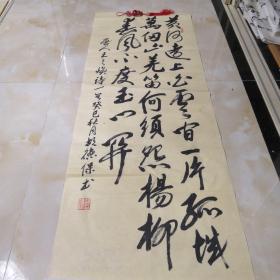 黄河远上白云间一片孤城
萬仞山羌笛何须怨楊柳
春風不度玉門関
唐人王之渙诗一首癸巳秋月